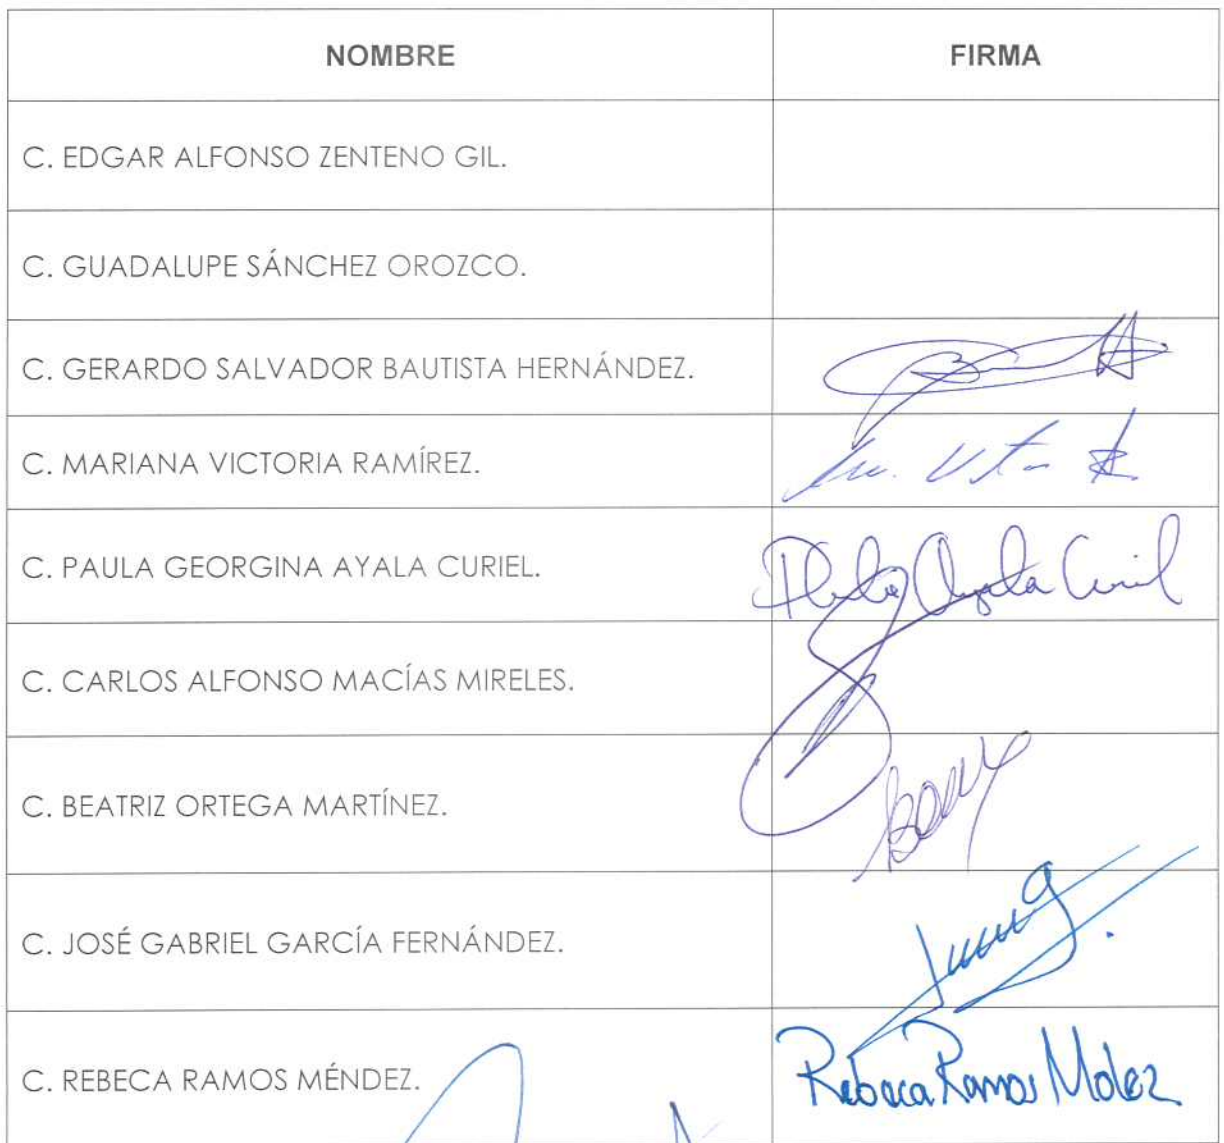 NOMBRE FIRMA
C. EDGAR ALFONSO ZENTENO GIL.
C. GUADALUPE SÁNCHEZ OROZCO.
C. GERARDO SALVADOR BAUTISTA HERNÁNDEZ.
C. MARIANA VICTORIA RAMÍREZ.
C. PAULA GEORGINA AYALA CURIEL. Ayala Curiel
C. CARLOS ALFONSO MACÍAS MIRELES.
C. BEATRIZ ORTEGA MARTÍNEZ.
C. JOSÉ GABRIEL GARCÍA FERNÁNDEZ.
C. REBECA RAMOS MÉNDEZ. Rebeca Ramos